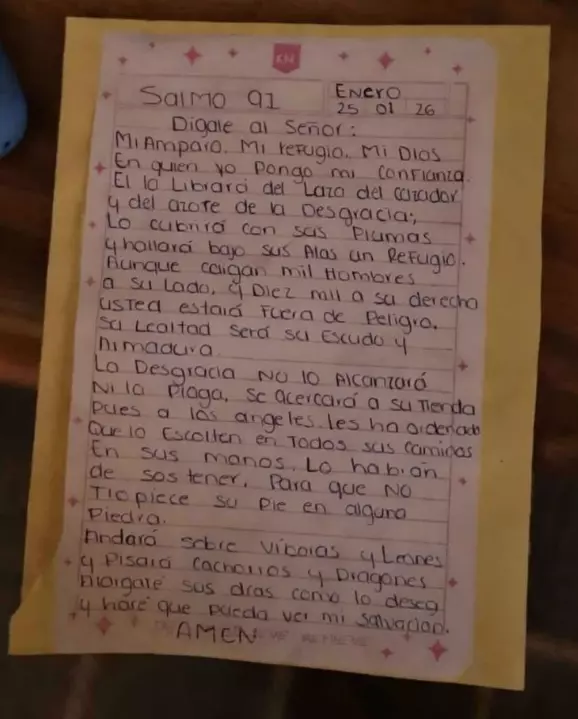 KN
Salmo 91
Enero
25 01 26
Digale al Señor:
Mi Amparo. Mi refugio. Mi Dios
En quien yo Pongo mi confianza.
El lo Librará del Lazo del cazador
y del azote de la Desgracia;
Lo cubrirá con sus Plumas
y hallará bajo sus Alas un Refugio.
Aunque caigan mil Hombres
a su Lado, y Diez mil a su derecha
usted estará Fuera de Peligro.
Su Lealtad será su Escudo y
Armadura.
La Desgracia No lo Alcanzará
Ni la Plaga, se acercará a su Tienda
pues a los angeles les ha ordenado
Que lo Escolten en Todos sus caminos
En sus manos. Lo habian
de sostener. Para que No
Tropiece su Pie en alguna
Piedra.
Andará sobre viboras y Leones
y Pisará cachorros y Dragones
Alargaté sus dias como lo deseo
y haré que pueda ver mi salvación.
AMEN